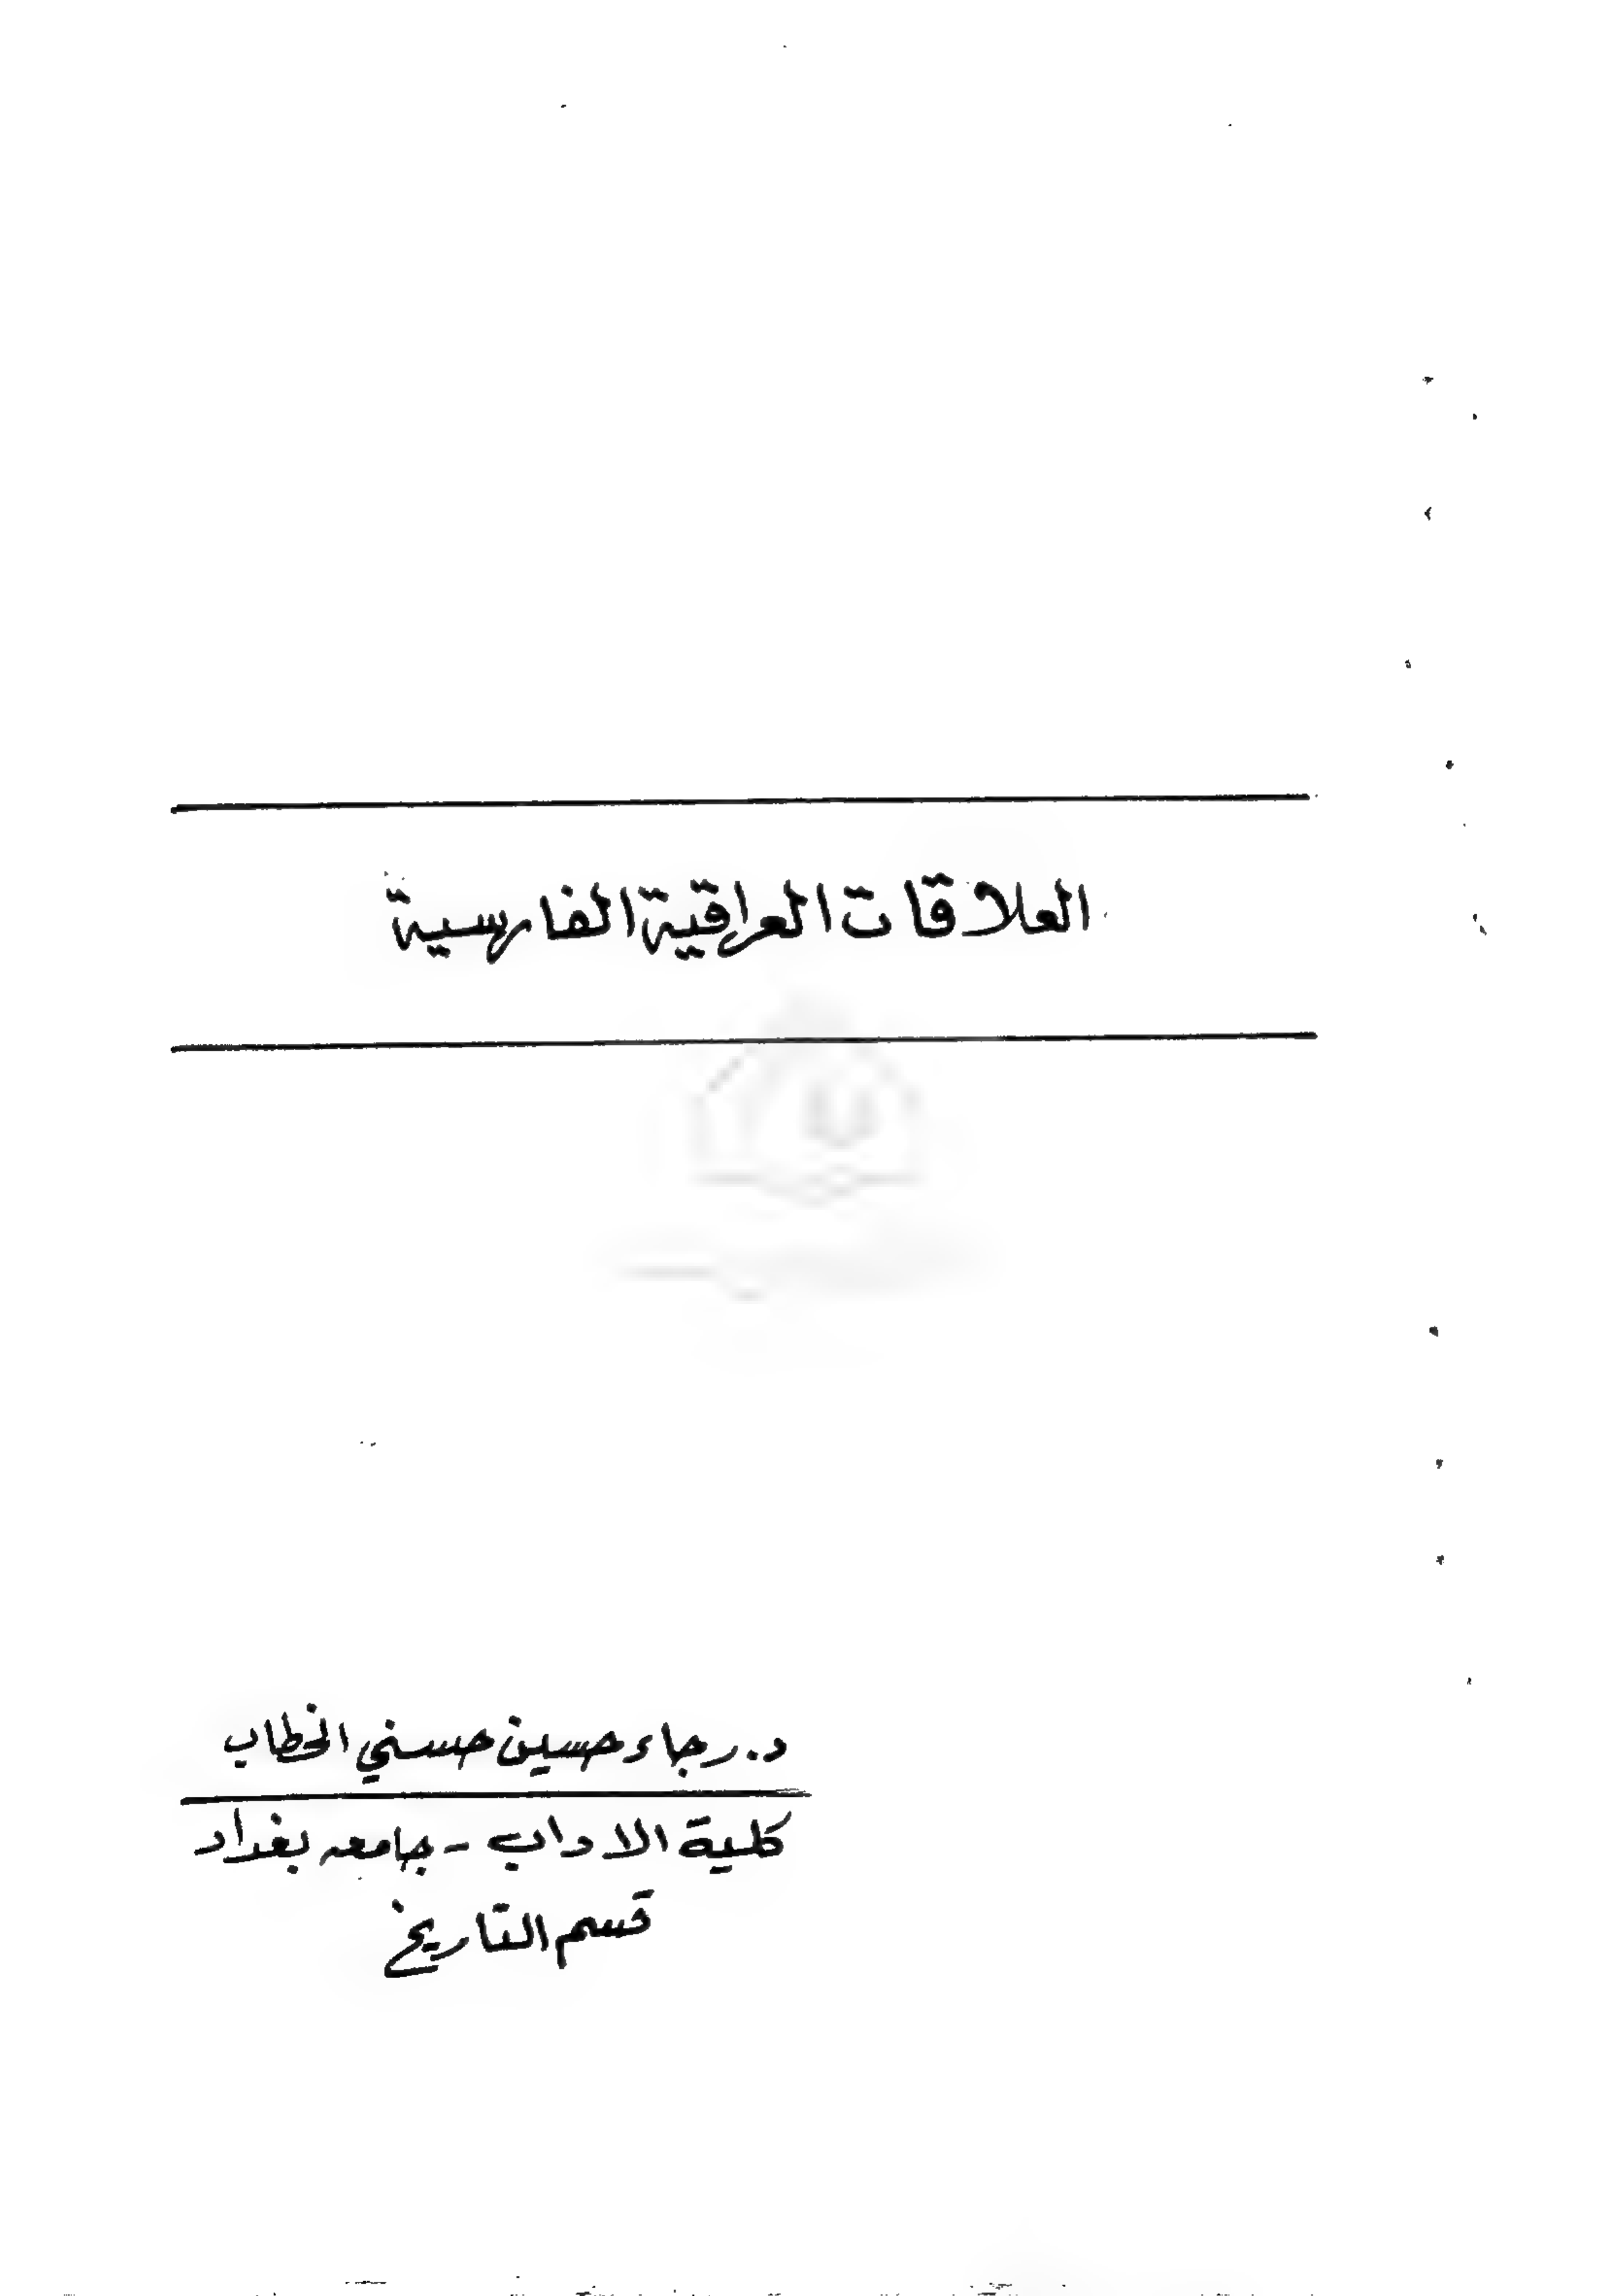 العلاقات العراقية الفارسية
د. رجاء حسين حسني الخطاب
كلية الاداب - جامعه بغداد
قسم التاريخ